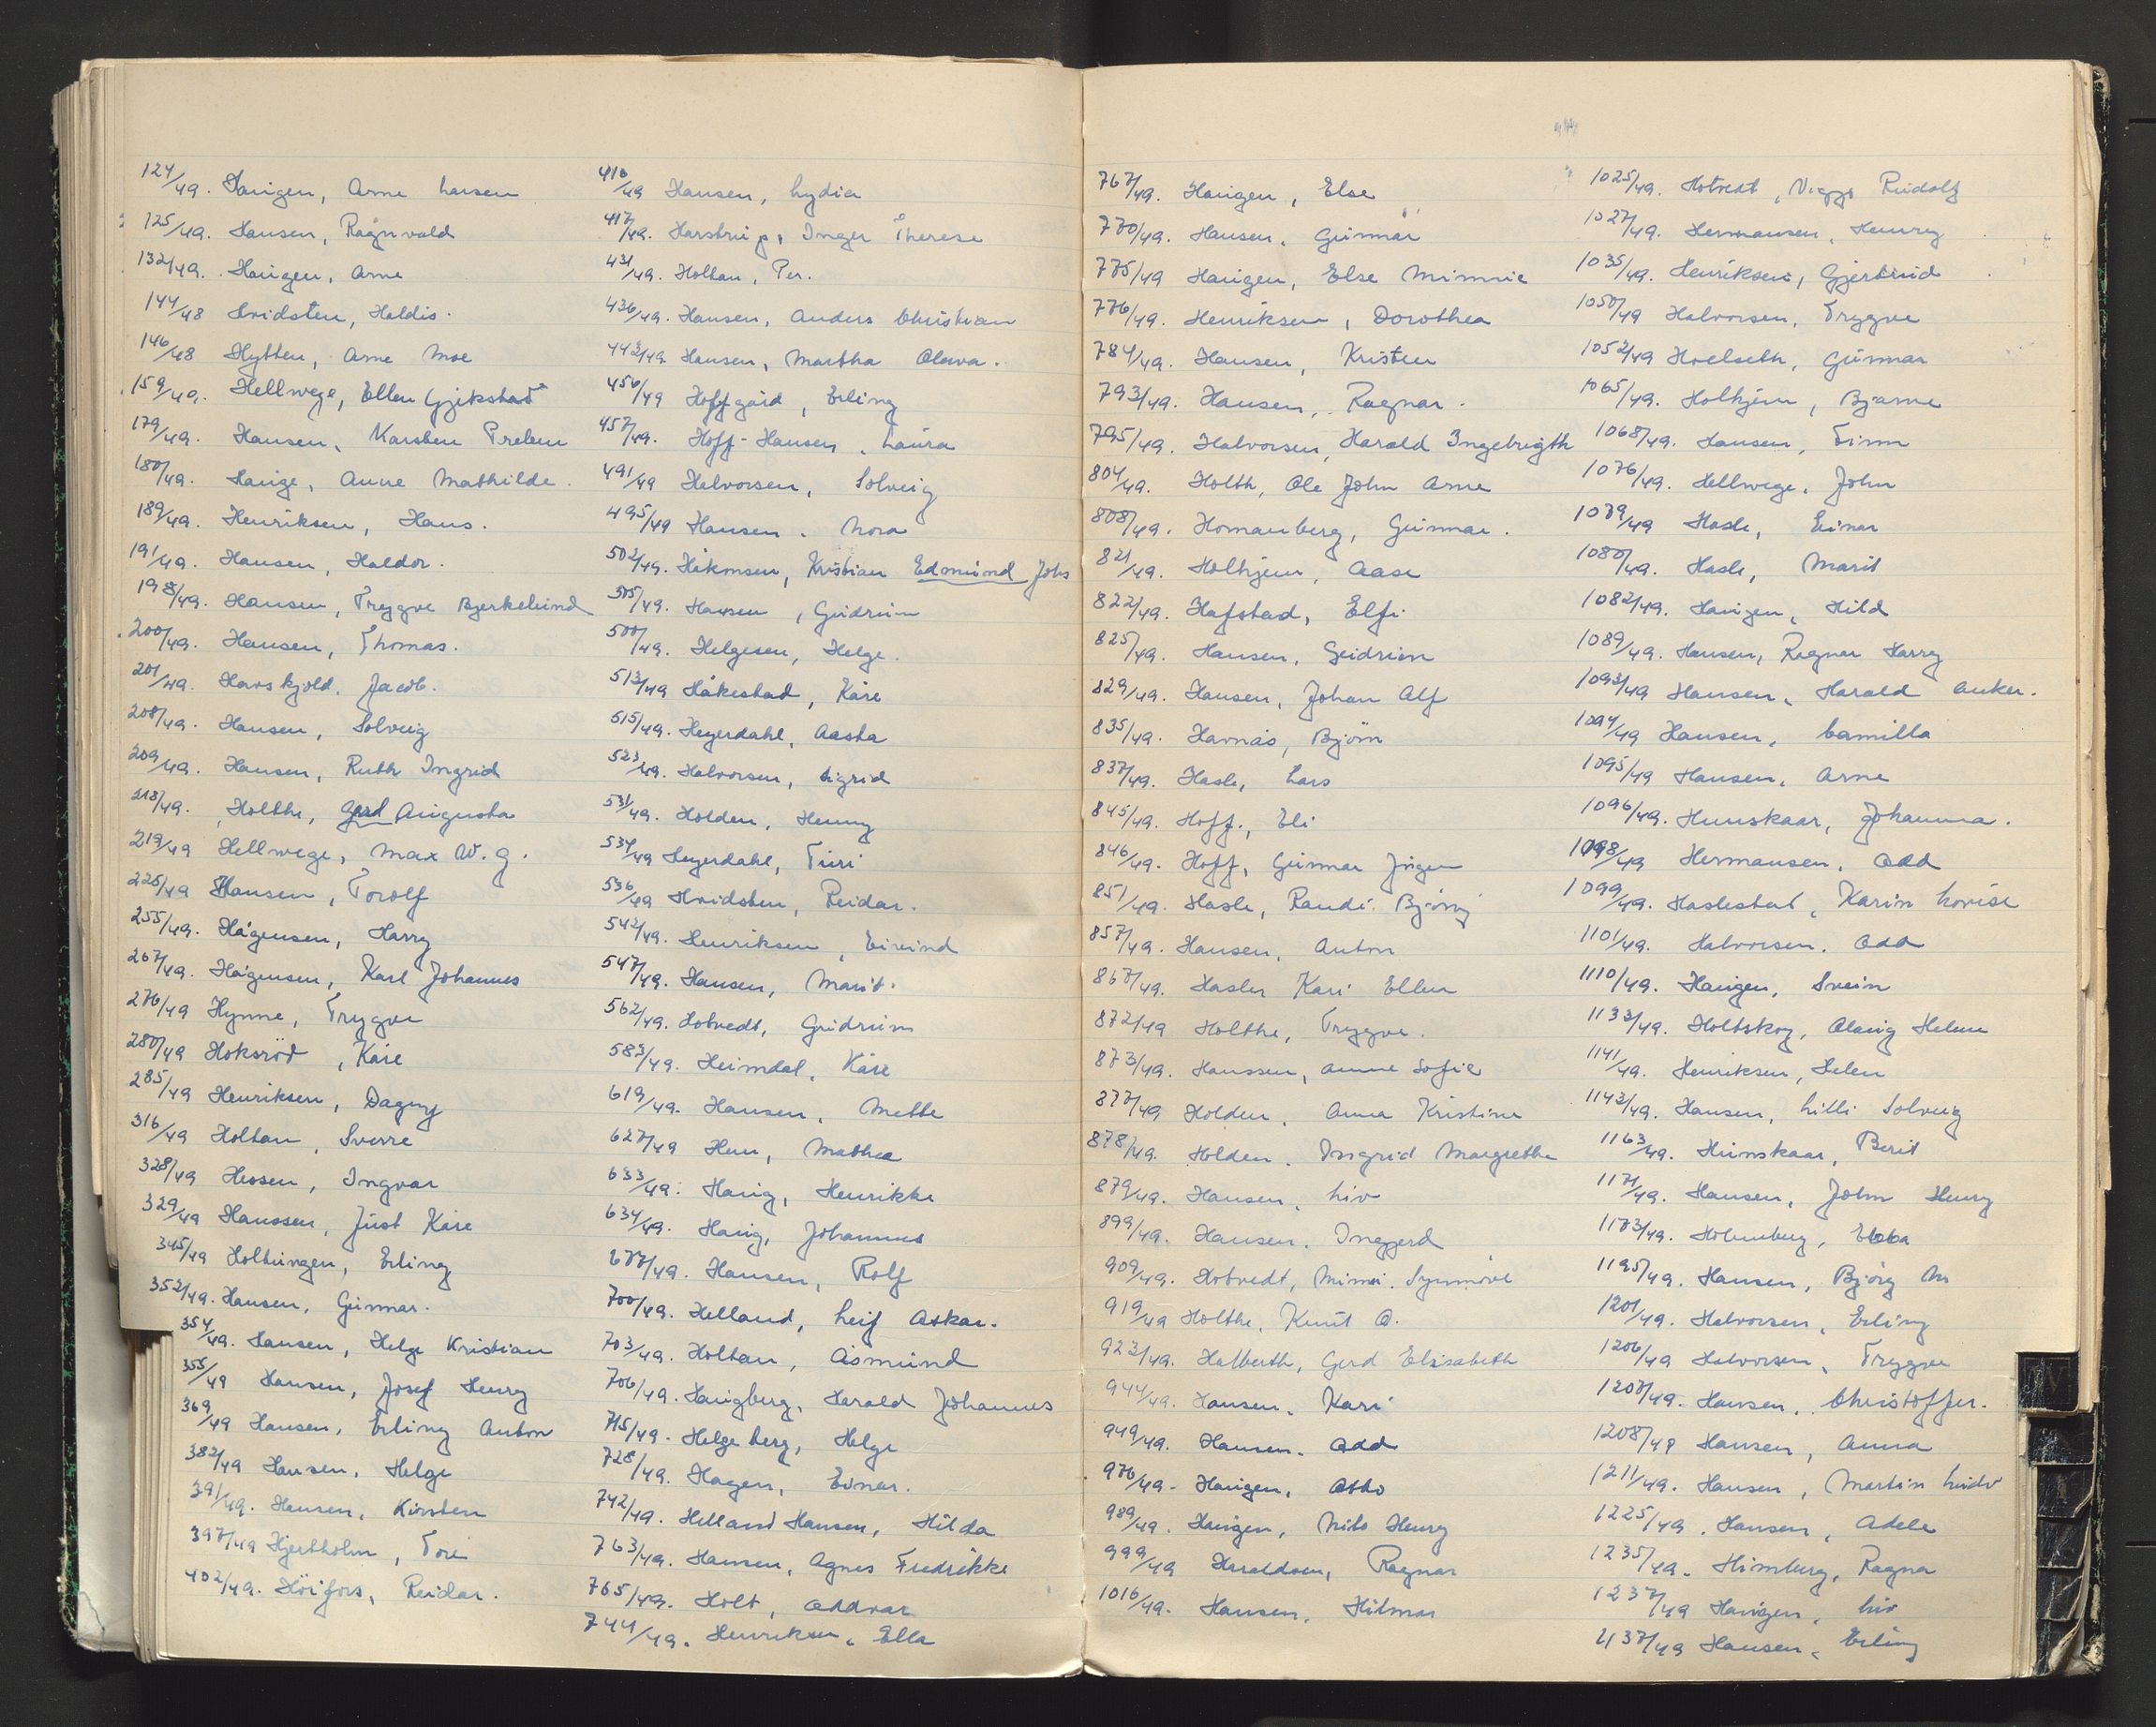 124/49. Haugen, Arne Larsen
125/49. Hansen, Ragnvald
132/49. Haugen, Arne
144/48 Hvidsten, Haldis.
146/48 Hytten, Arne Moe
159/49. Hellwege, Ellen Gjikstad
179/49. Hansen, Karsten Preben
180/49. Hauge, Anne Mathilde.
189/49. Henriksen, Hans.
191/49. Hansen, Haldor.
198/49. Hansen, Trygve Bjerkelund
200/49. Hansen, Thomas.
201/49. Havskjold, Jacob.
208/49. Hansen, Solveig
209/49. Hansen, Ruth Ingrid
218/49. Holthe, Gerd Augusta
219/49 Hellwege, Max W. G.
225/49 Hansen, Torolf
255/49. Hågensen, Harry
267/49. Hågensen, Karl Johannes
276/49 Hynne, Trygve
280/49 Hoksröd, Kåre
285/49 Henriksen, Dagny
316/49 Holtan, Sverre
328/49 Hessen, Ingvar
329/49 Hanssen, Just Kåre
345/49 Holtungen, Erling
352/49. Hansen, Gunnar.
354/49. Hansen, Helge Kristian
355/49 Hansen, Josef Henry
369/49 Hansen, Erling Anton
382/49 Hansen, Helge
391/49. Hansen, Kirsten
397/49 Hjertholm, Tore
402/49. Höifors, Reidar.
416/49 Hansen, Lydia
417/49. Harstrup, Inger Therese
431/49. Holtan, Per.
436/49. Hansen, Anders Christian
442/49. Hansen, Martha Olava.
456/49 Hoffgård, Erling
457/49. Hoff-Hansen, Laura
491/49 Halvorsen, Solveig
495/49 Hansen, Nora
502/49. Håkonsen, Kristian Edmund Johs
505/49. Hansen, Gudrun
500/49. Helgesen, Helge.
513/49 Håkestad, Kåre
515/49. Heyerdahl, Aasta
523/49. Halvorsen, Sigrid
531/49. Holden, Henny
534/49 Heyerdahl, Turi
536/49 Hvidsten, Reidar.
542/49. Henriksen, Eivind
547/49. Hansen, Marit.
562/49. Hotvedt, Gudrun
583/49. Heimdal, Kåre
619/49. Hansen, Mette
627/49 Hem, Mathea
633/49. Haug, Henrikke
634/49. Haug, Johannes
677/49. Hansen, Rolf
700/49. Helland, Leif Askar.
703/49. Holtan, Åsmund
706/49. Haugberg, Harald Johannes
715/49. Helgeberg, Helge
728/49. Hagen, Einar.
742/49. Helland Hansen, Hilda
763/49. Hansen, Agnes Fredrikke
765/49. Holt, Oddvar
744/49. Henriksen, Ella
767/49. Haugen, Else
770/49. Hansen, Gunnar
775/49 Haugen, Else Minnie
776/49. Henriksen, Dorothea
784/49. Hansen, Kristen
793/49. Hansen, Ragnar.
795/49. Halvorsen, Harald Ingebrigth
804/49. Holth, Ole John Arne
808/49. Homanberg, Gunnar.
821/49. Holhjem, Aase
822/49. Hafstad, Elfi
825/49. Hansen, Gudrun
829/49. Hansen, Johan Alf
835/49. Havnås, Björn
837/49. Hasle, Lars
845/49. Hoff, Eli
846/49. Hoff, Gunnar Jörgen
851/49. Hasle, Randi Björy
857/49. Hansen, Anton
867/49. Hasler Kari Ellen
872/49 Holthe, Trygve.
873/49. Hanssen, Anne Sofie
877/49 Holden, Anna Kristine
878/49. Holden, Ingrid Margrethe
879/49. Hansen, Liv
899/49. Hansen, Inggerd
909/49. Hotvedt, Mimi Synnöve
919/49 Holthe, Knut O.
923/49. Halberth, Gerd Elisabeth
944/49. Hansen, Kari
949/49. Hansen, Odd
976/49. Haugen, Otto
989/49. Haugen, Nils Henry
999/49 Haraldsen, Ragnar
1016/49. Hansen, Hilmar
1025/49. Hotvedt, Viggo Rudolf
1027/49. Hermansen, Henry
1035/49. Henriksen, Gjertrud
1050/49 Halvorsen, Trygve
1052/49 Hoelseth, Gunnar
1065/49. Holhjem, Bjarne
1068/49. Hansen, Finn
1076/49. Hellwege, John
1079/49 Hasle, Einar
1080/49. Hasle, Marit
1082/49. Haugen, Hild
1089/49. Hansen, Ragnar Harry
1093/49 Hansen, Harald Anker.
1094/49 Hansen, Camilla
1095/49 Hansen, Arne
1096/49. Hunskaar, Johanna.
1098/49 Hermansen, Odd
1099/49. Haslestad, Karin Lovise
1101/49. Halvorsen, Odd
1110/49. Haugen, Svein
1133/49. Holtskog, Olaug Helene
1141/49. Henriksen, Helen
1143/49. Hansen, Lilli Solveig
1163/49. Hunskaar, Berit
1171/49. Hansen, John Henry
1173/49. Holmberg, Ebba
1195/49. Hansen, Björg M
1201/49. Halvorsen, Erling
1206/49 Halvorsen, Trygve
1207/49. Hansen, Christoffer.
1208/49 Hansen, Anna
1211/49. Hansen, Martin Ludv
1225/49. Hansen, Adele
1235/49. Himberg, Ragna
1237/49 Haugen, Liv
1137/49 Hansen, Erling